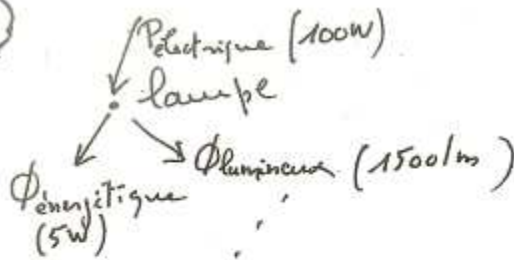 Pélectrique (100W)
lampe
Φénergétique
(5W)
Φlumineux (1500lm)